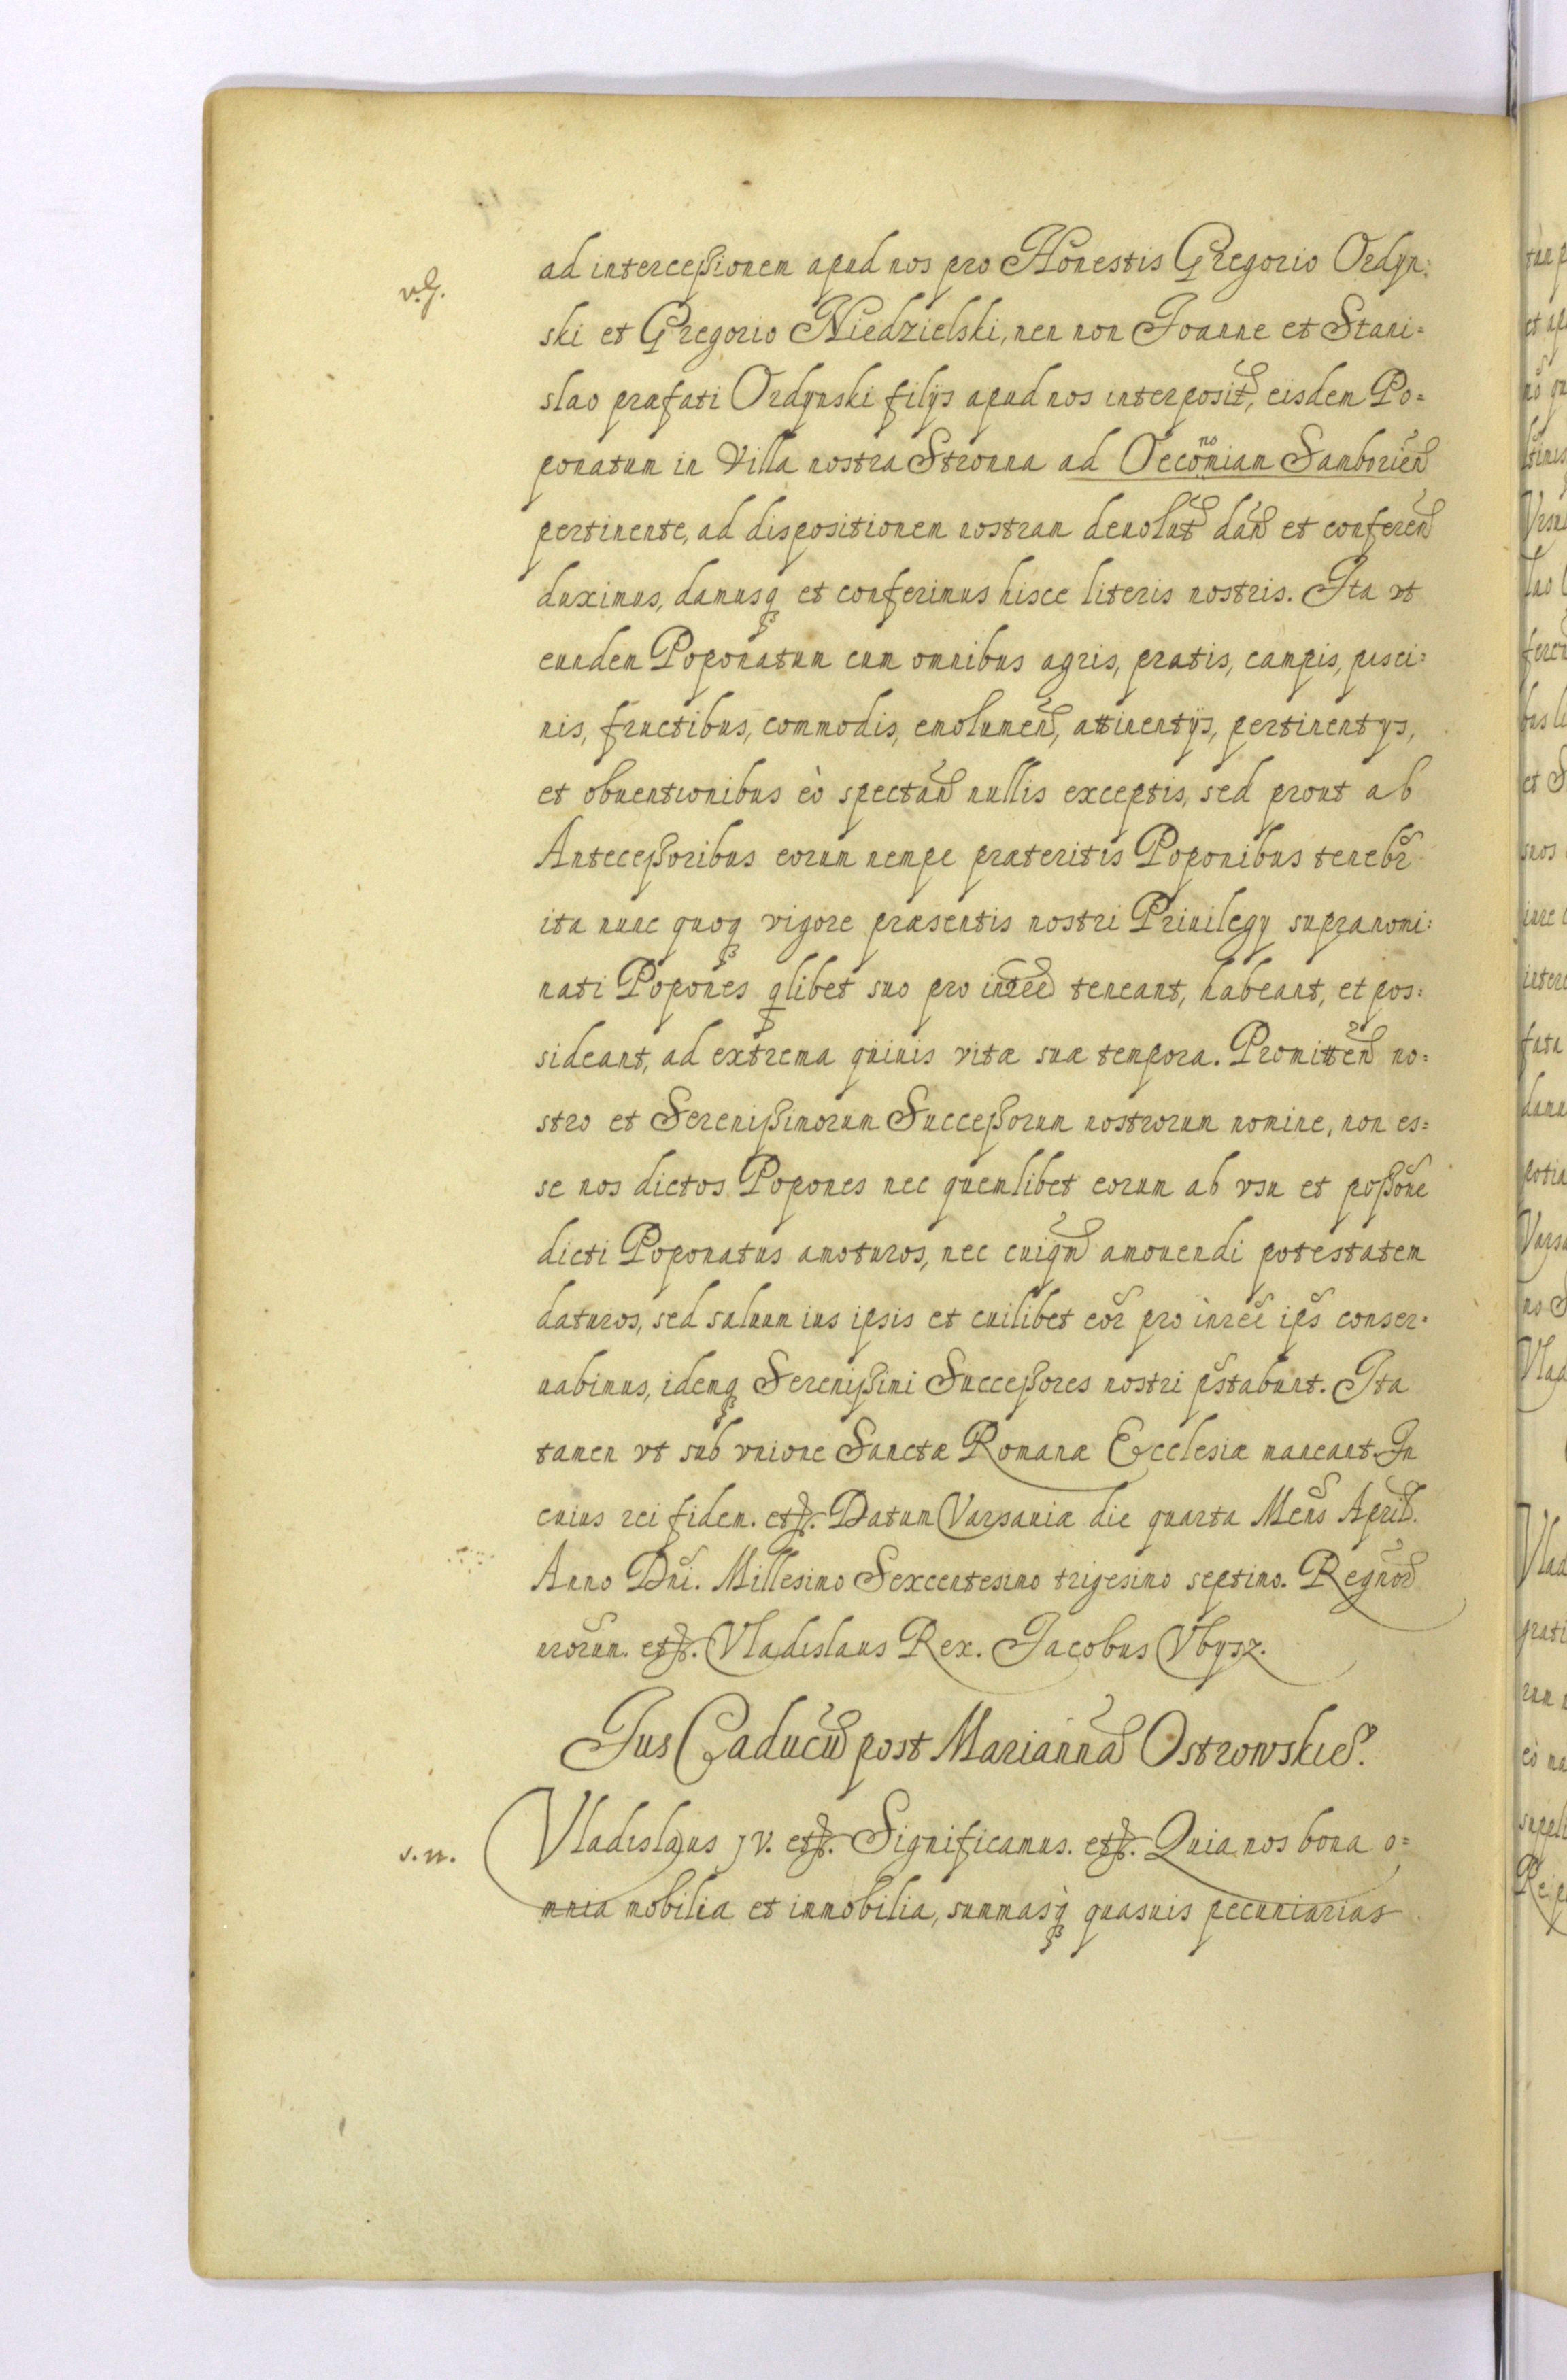 ad intercessionem apud nos pro Honestis Gregorio Ordyn:
v.g.
ski et Gregorio Niedzielski, nen non Joanne et Stani=
slao præfati Ordynski filijs apud nos interposit, eisdem Po=
ponatum in Villa nostra Stronna ad Oeconomiam Samborien
pertinente, ad dispositionem nostram deuolut dan et conferen
duximus, damusq et conferimus hisce literis nostris. Ita vt
eundem Poponatum cum omnibus agris, pratis, campis, pisci:
nis, fructibus, commodis, emolumen, attinentijs, pertinentys,
et obuentionibus eò spectan nullis exceptis, sed prout ab
Antecessoribus eorum nempe præteritis Poponibus tenebr
ita nunc quoq vigore præsentis nostri Priuilegy supranomi:
nati Popones qlibet suo pro interee teneant, habeant, et pos:
sideant, ad extrema quiuis vitæ suæ tempora. Promitten no:
stro et Serenissimorum Successorum nostrorum nomine, non es:
se nos dictos Popones nec quemlibet eorum ab vsu et possone
dicti Poponatus amoturos, nec cuiqm amouendi potestatem
daturos, sed saluum ius ipsis et cuilibet eor pro inree ips conser=
uabimus, idemq Serenissimi Successores nostri pstabunt. Ita
tamen vt sub vnione Sanctæ Romanæ Ecclesiæ maneant. In
cuius rei fidem. etc. Datum Varsauiæ die quarta Mens April.
Anno Dni. Millesimo Sexcentesimo trigesimo septimo. Regnor
nrorum. etc. Vladislaus Rex. Jacobus Vbysz.
Jus Caducu post Marianna Ostrowskie.
s.n. Vladislaus jv. etc. Significamus. etc. Quia nos bona o=
mnia mobilia et immobilia, summasq quasuis pecuniarias